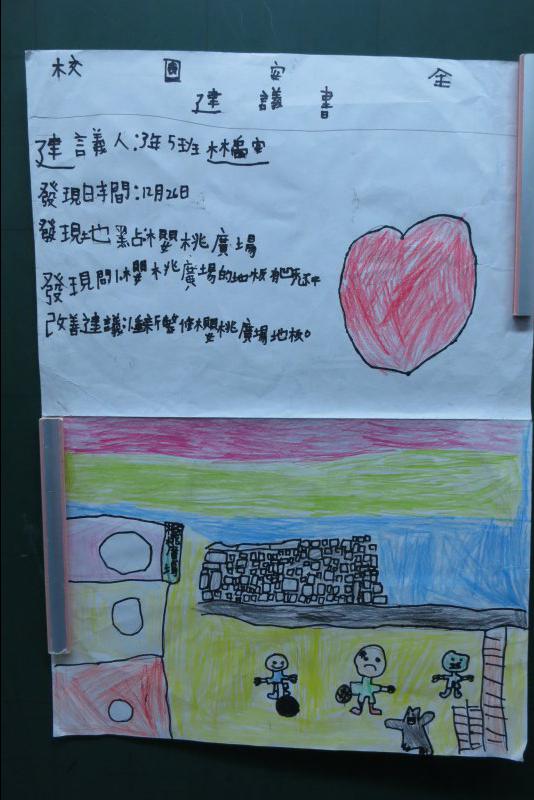 校園安全
建議書
建議人:3年5班林禹安
發現日時間:12月26日
發現地點櫻桃廣場
發現問櫻桃廣場的地板
改善建議:重新整修櫻桃廣場地板。